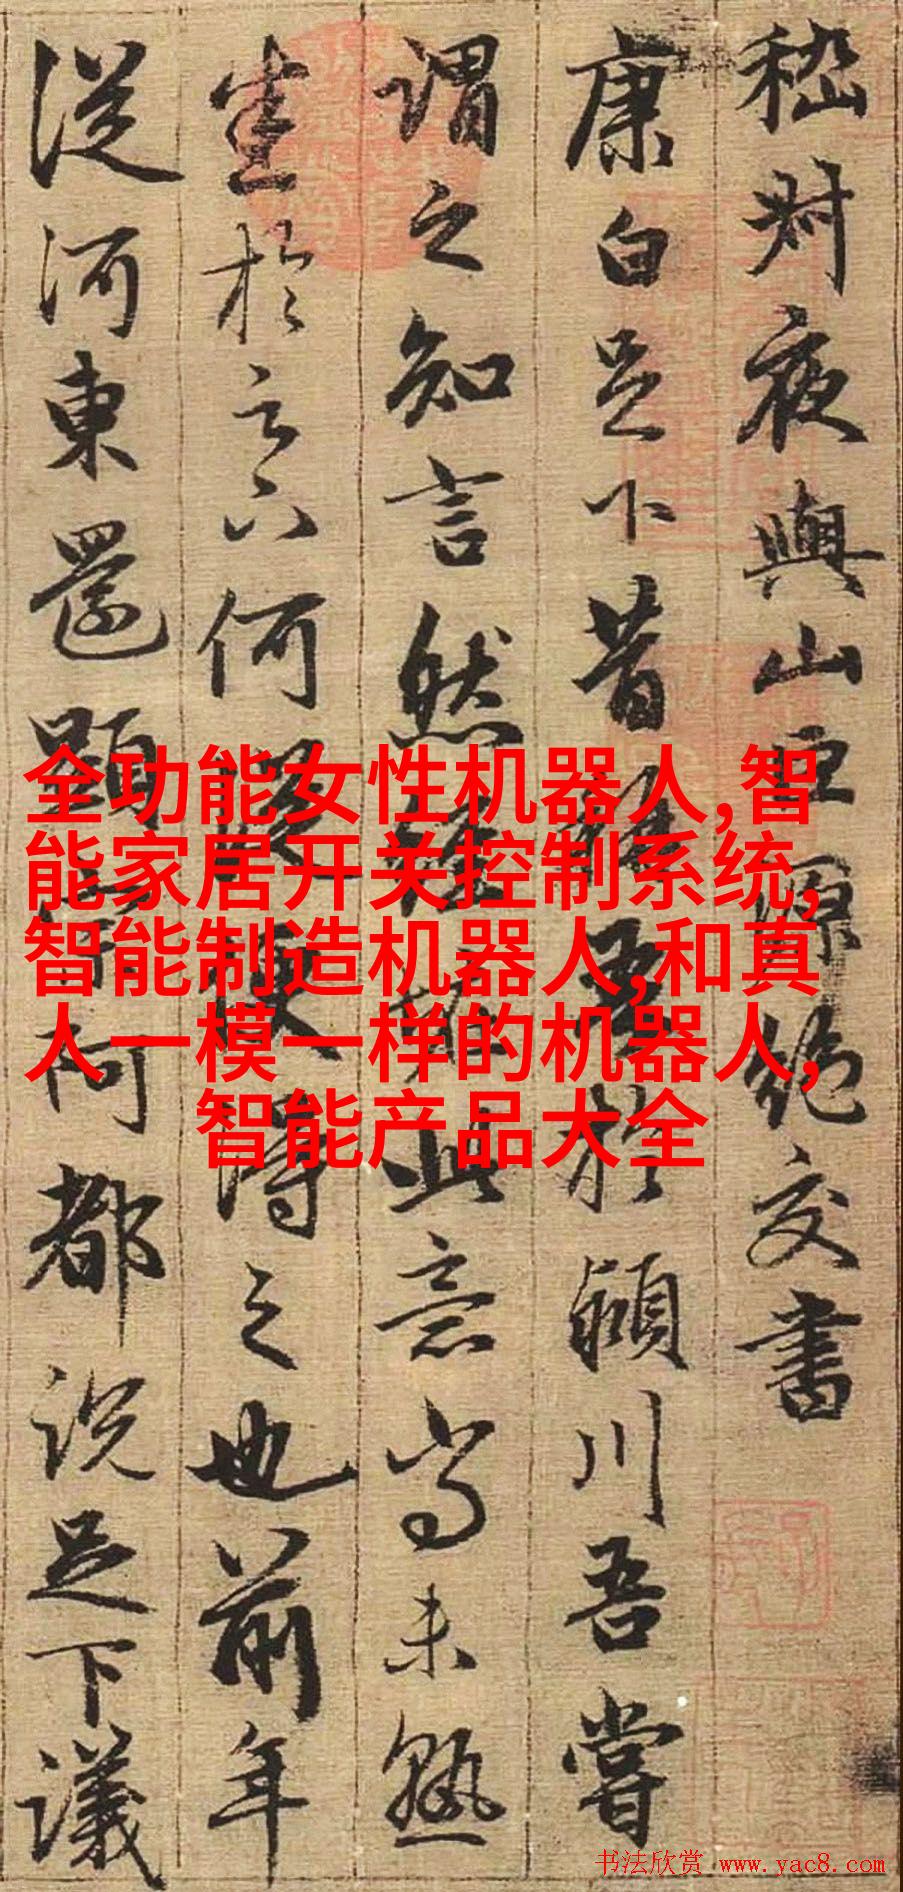 嵇叔夜與山巨源絕交書
康白足下昔稱吾於潁川吾嘗
謂之知言然經怪此意尚未熟
於足下何從便得之也前年
從河東還顯宗阿都說足下議
全功能女性机器人,智
能家居开关控制系统,
智能制造机器人,和真
人一模一样的机器人,
智能产品大全
书法欣赏 www.yac8.com